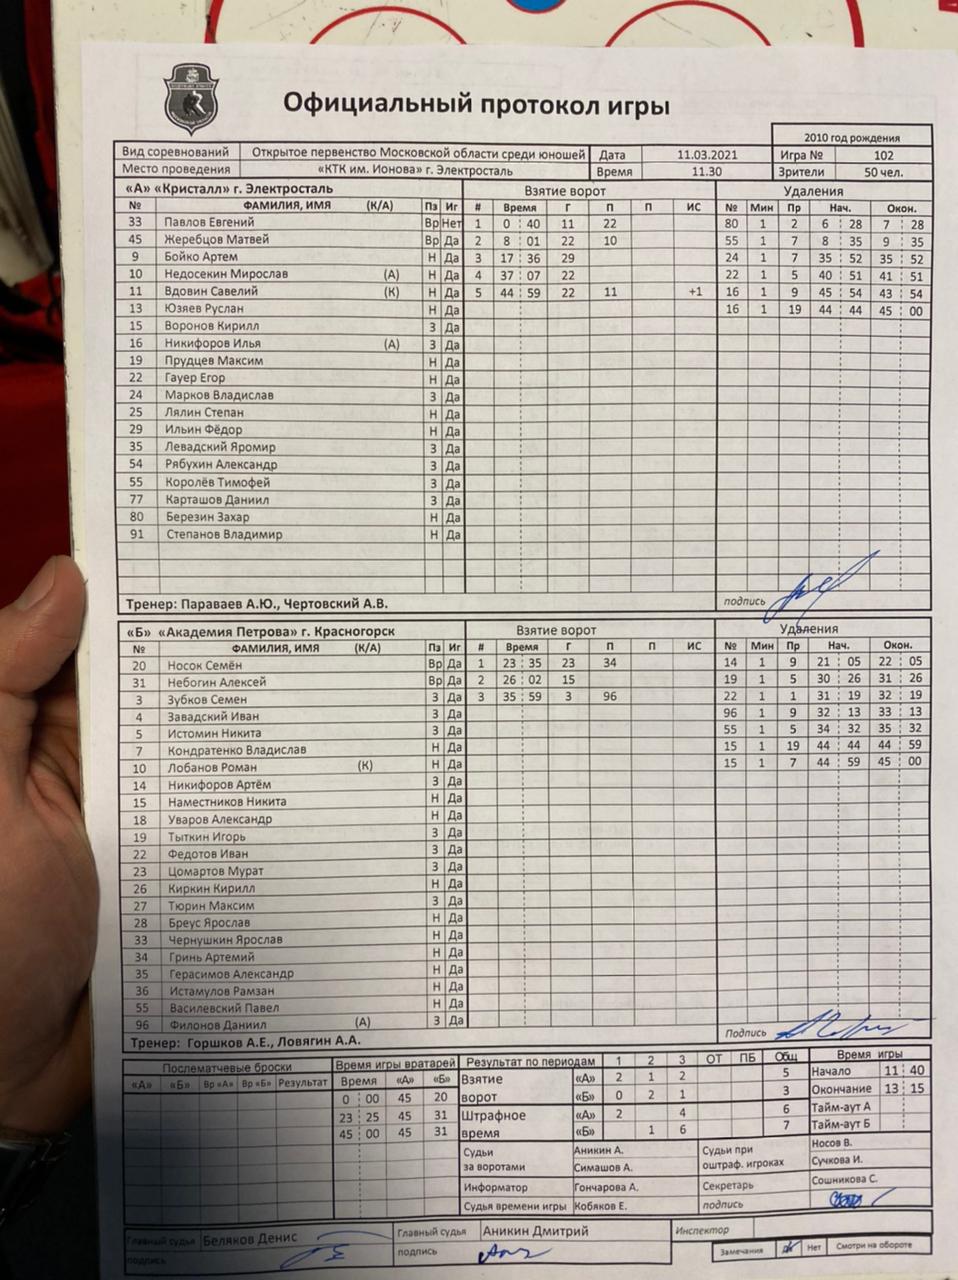 Официальный протокол игры
2010 год рождения
Вид соревнований Открытое первенство Московской области среди юношей Дата 11.03.2021 Игра № 102
Место проведения «КТК им. Ионова» г. Электросталь Время 11.30 Зрители 50 чел.
«А» «Кристалл» г. Электросталь Взятие ворот Удаления
№ ФАМИЛИЯ, ИМЯ (К/А) Пз Иг # Время Г П П ИС № Мин Пр Нач. Окон.
33 Павлов Евгений Вр Нет 1 0 40 11 22 80 1 2 6 28 7 28
45 Жеребцов Матвей Вр Да 2 8 01 22 10 55 1 7 8 35 9 35
9 Бойко Артем Н Да 3 17 36 29 24 1 7 35 52 35 52
10 Недосекин Мирослав (А) Н Да 4 37 07 22 22 1 5 40 51 41 51
11 Вдовин Савелий (К) Н Да 5 44 59 22 11 +1 16 1 9 45 54 43 54
13 Юзяев Руслан Н Да 16 1 19 44 44 45 00
15 Воронов Кирилл З Да
16 Никифоров Илья (А) З Да
19 Прудцев Максим Н Да
22 Гауер Егор Н Да
24 Марков Владислав З Да
25 Лялин Степан Н Да
29 Ильин Фёдор Н Да
35 Левадский Яромир З Да
54 Рябухин Александр З Да
55 Королёв Тимофей З Да
77 Карташов Даниил З Да
80 Березин Захар Н Да
91 Степанов Владимир Н Да
Тренер: Параваев А.Ю., Чертовский А.В. подпись
«Б» «Академия Петрова» г. Красногорск Взятие ворот Удаления
№ ФАМИЛИЯ, ИМЯ (К/А) Пз Иг # Время Г П П ИС № Мин Пр Нач. Окон.
20 Носок Семён Вр Да 1 23 35 23 34 14 1 9 21 05 22 05
31 Небогин Алексей Вр Да 2 26 02 15 19 1 5 30 26 31 26
3 Зубков Семен З Да 3 35 59 3 96 22 1 1 31 19 32 19
4 Завадский Иван З Да 96 1 9 32 13 33 13
5 Истомин Никита З Да 55 1 5 34 32 35 32
7 Кондратенко Владислав Н Да 15 1 19 44 44 44 59
10 Лобанов Роман (К) Н Да 15 1 7 44 59 45 00
14 Никифоров Артём З Да
15 Наместников Никита Н Да
18 Уваров Александр Н Да
19 Тыткин Игорь З Да
22 Федотов Иван З Да
23 Цомартов Мурат З Да
26 Киркин Кирилл Н Да
27 Тюрин Максим З Да
28 Бреус Ярослав Н Да
33 Чернушкин Ярослав Н Да
34 Гринь Артемий Н Да
35 Герасимов Александр Н Да
36 Истамулов Рамзан Н Да
55 Василевский Павел Н Да
96 Филонов Даниил (А) З Да
Тренер: Горшков А.Е., Ловягин А.А. Подпись
Послематчевые броски Время игры вратарей Результат по периодам 1 2 3 ОТ ПБ Общ Время игры
«А» «Б» Вр «А» Вр «Б» Результат Время «А» «Б» Взятие ворот «А» 2 1 2 5 Начало 11 40
0 00 45 20 «Б» 0 2 1 3 Окончание 13 15
23 25 45 31 Штрафное время «А» 2 4 6 Тайм-аут А
45 00 45 31 «Б» 1 6 7 Тайм-аут Б
Судьи за воротами Аникин А. Симашов А. Судьи при оштраф. игроках Носов В. Сучкова И.
Информатор Гончарова А. Секретарь Сошникова С.
Судья времени игры Кобяков Е. подпись
Главный судья Беляков Денис Главный судья Аникин Дмитрий Инспектор
подпись подпись Замечания Да Нет Смотри на обороте